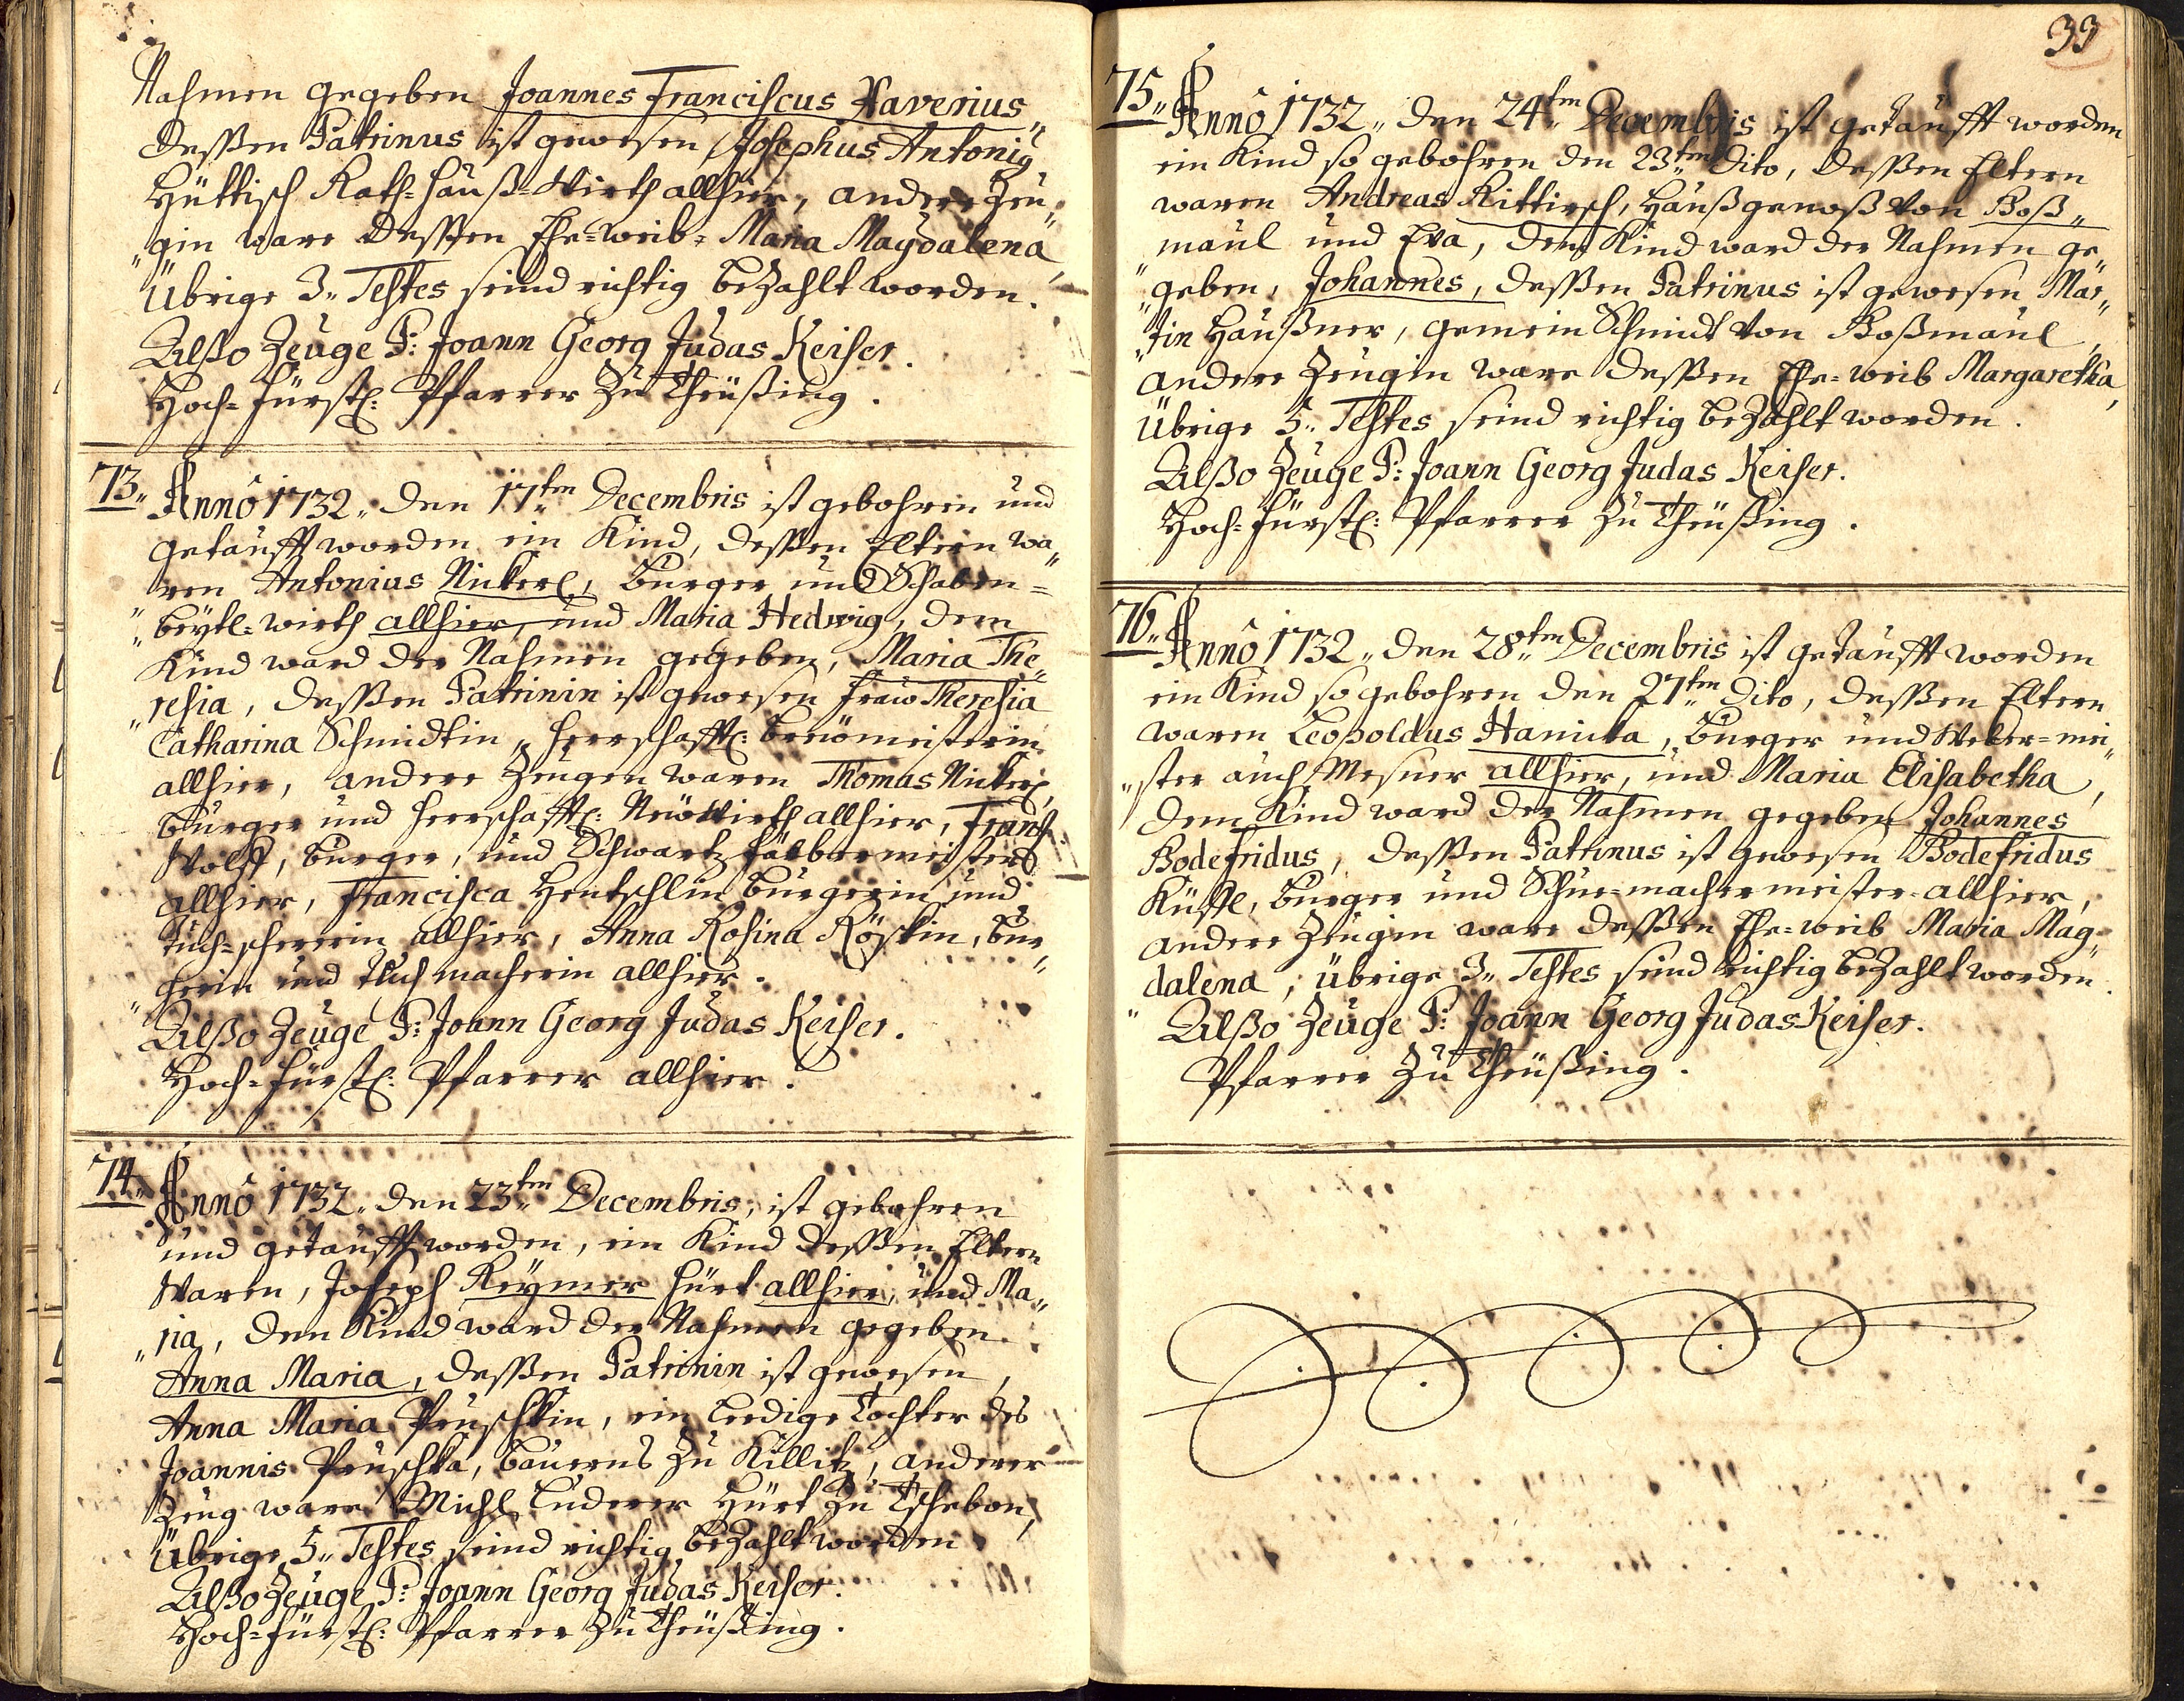 Nahmen gegeben Joannes Franciscus Xaverius,
dessen Patrinus ist gewesen Josephus Antonig
Hüttisch Rath-hauß-Wirth allhier, andere Zeu„
„gin ware dessen Ehe-weib, Maria Magdalena,
Übrige 3„ Testes seind richtig bezahlt worden.
Alßo Zeuge P: Joann Georg Judas Keiser.
Hoch-fürstl: Pfarrer zu Theüßing.
73„ Anno 1732„ den 17ten Decembris ist gebohren und
getaufft worden ein Kind, dessen Eltern wa„
„ren Antonius Nickerl, burger und Schaben=
„beytl-wirth allhier, und Maria Hedwig, dem
Kind ward der Nahmen gegeben, Maria The„
„resia, dessen Patrinin ist gewesen Fraw Theresia
Catharina Schmidtin, herrschafftl: breümeisterin
allhier, andere Zeugen waren Thomas Nickerl,
burger und herrschafftl: Neüwirth allhier, Frantz
Wolff, burger, und Schwartzfärbermeister
allhier, Francisca Hentschlin burgerin und
tuch-schererin allhier, Anna Rosina bur„
„gerin und tuchmacherin allhier.
Alßo Zeuge P: Joann Georg Judas Keiser.
Hoch-fürstl: Pfarrer allhier.
74„ Anno 1732„ den 23ten Decembris, ist gebohren
und getaufft worden, ein Kind dessen Eltern
Waren, Joseph Reymer hürt allhier, und Ma„
„ria, dem Kind ward der Nahmen gegeben
Anna Maria, dessen Patrinin ist gewesen,
Anna Maria Peuschkin, ein leedige Tochter des
Joannis Peuschka, bauerns zu Killitz, anderer
Zeug ware Michl Luderer Hürt zu Tschebon,
Übrige 5„ Testes seind richtig bezahlt worden
Alßo Zeuge P: Joann Georg Judas Keiser.
Hoch-fürstl: Pfarrer zu Theüßing.
33
75„ Anno 1732„ den 24ten Decembris ist getaufft worden
ein Kind so gebohren den 23ten dito, dessen Eltern
waren Andreas Rittirsch, haußgenoß von Roß„
„maul und Eva, dem Kind ward der Nahmen ge„
„geben, Johannes, dessen Patrinus ist gewesen Mar„
„tin Haußner, gemein Schmidt von Roßmaul,
andere Zeugin ware dessen Ehe-weib Margaretha,
Übrige 5„ Testes seind richtig bezahlt worden.
Alßo Zeuge P: Joann Georg Judas Keiser.
Hoch-fürstl: Pfarrer zu Theüßing.
76„ Anno 1732„ den 28ten Decembris ist getaufft worden
ein Kind so gebohren den 27ten dito, dessen Eltern
waren Leopoldus Hanicka, burger und Weber-mei„
„ster auch Mesner allhier, und Maria Elisabetha,
dem Kind ward der Nahmen gegeben Johannes
Bodefridus, dessen Patrinus ist gewesen Bodefridus
burger und Schue-machermeister allhier,
andere Zeugin ware dessen Ehe-weib Maria Mag„
dalena, übrige 3„ Testes seind richtig bezahlt worden.
„Alßo Zeuge P: Joann Georg Judas Keiser.
Pfarrer zu Theüßing.